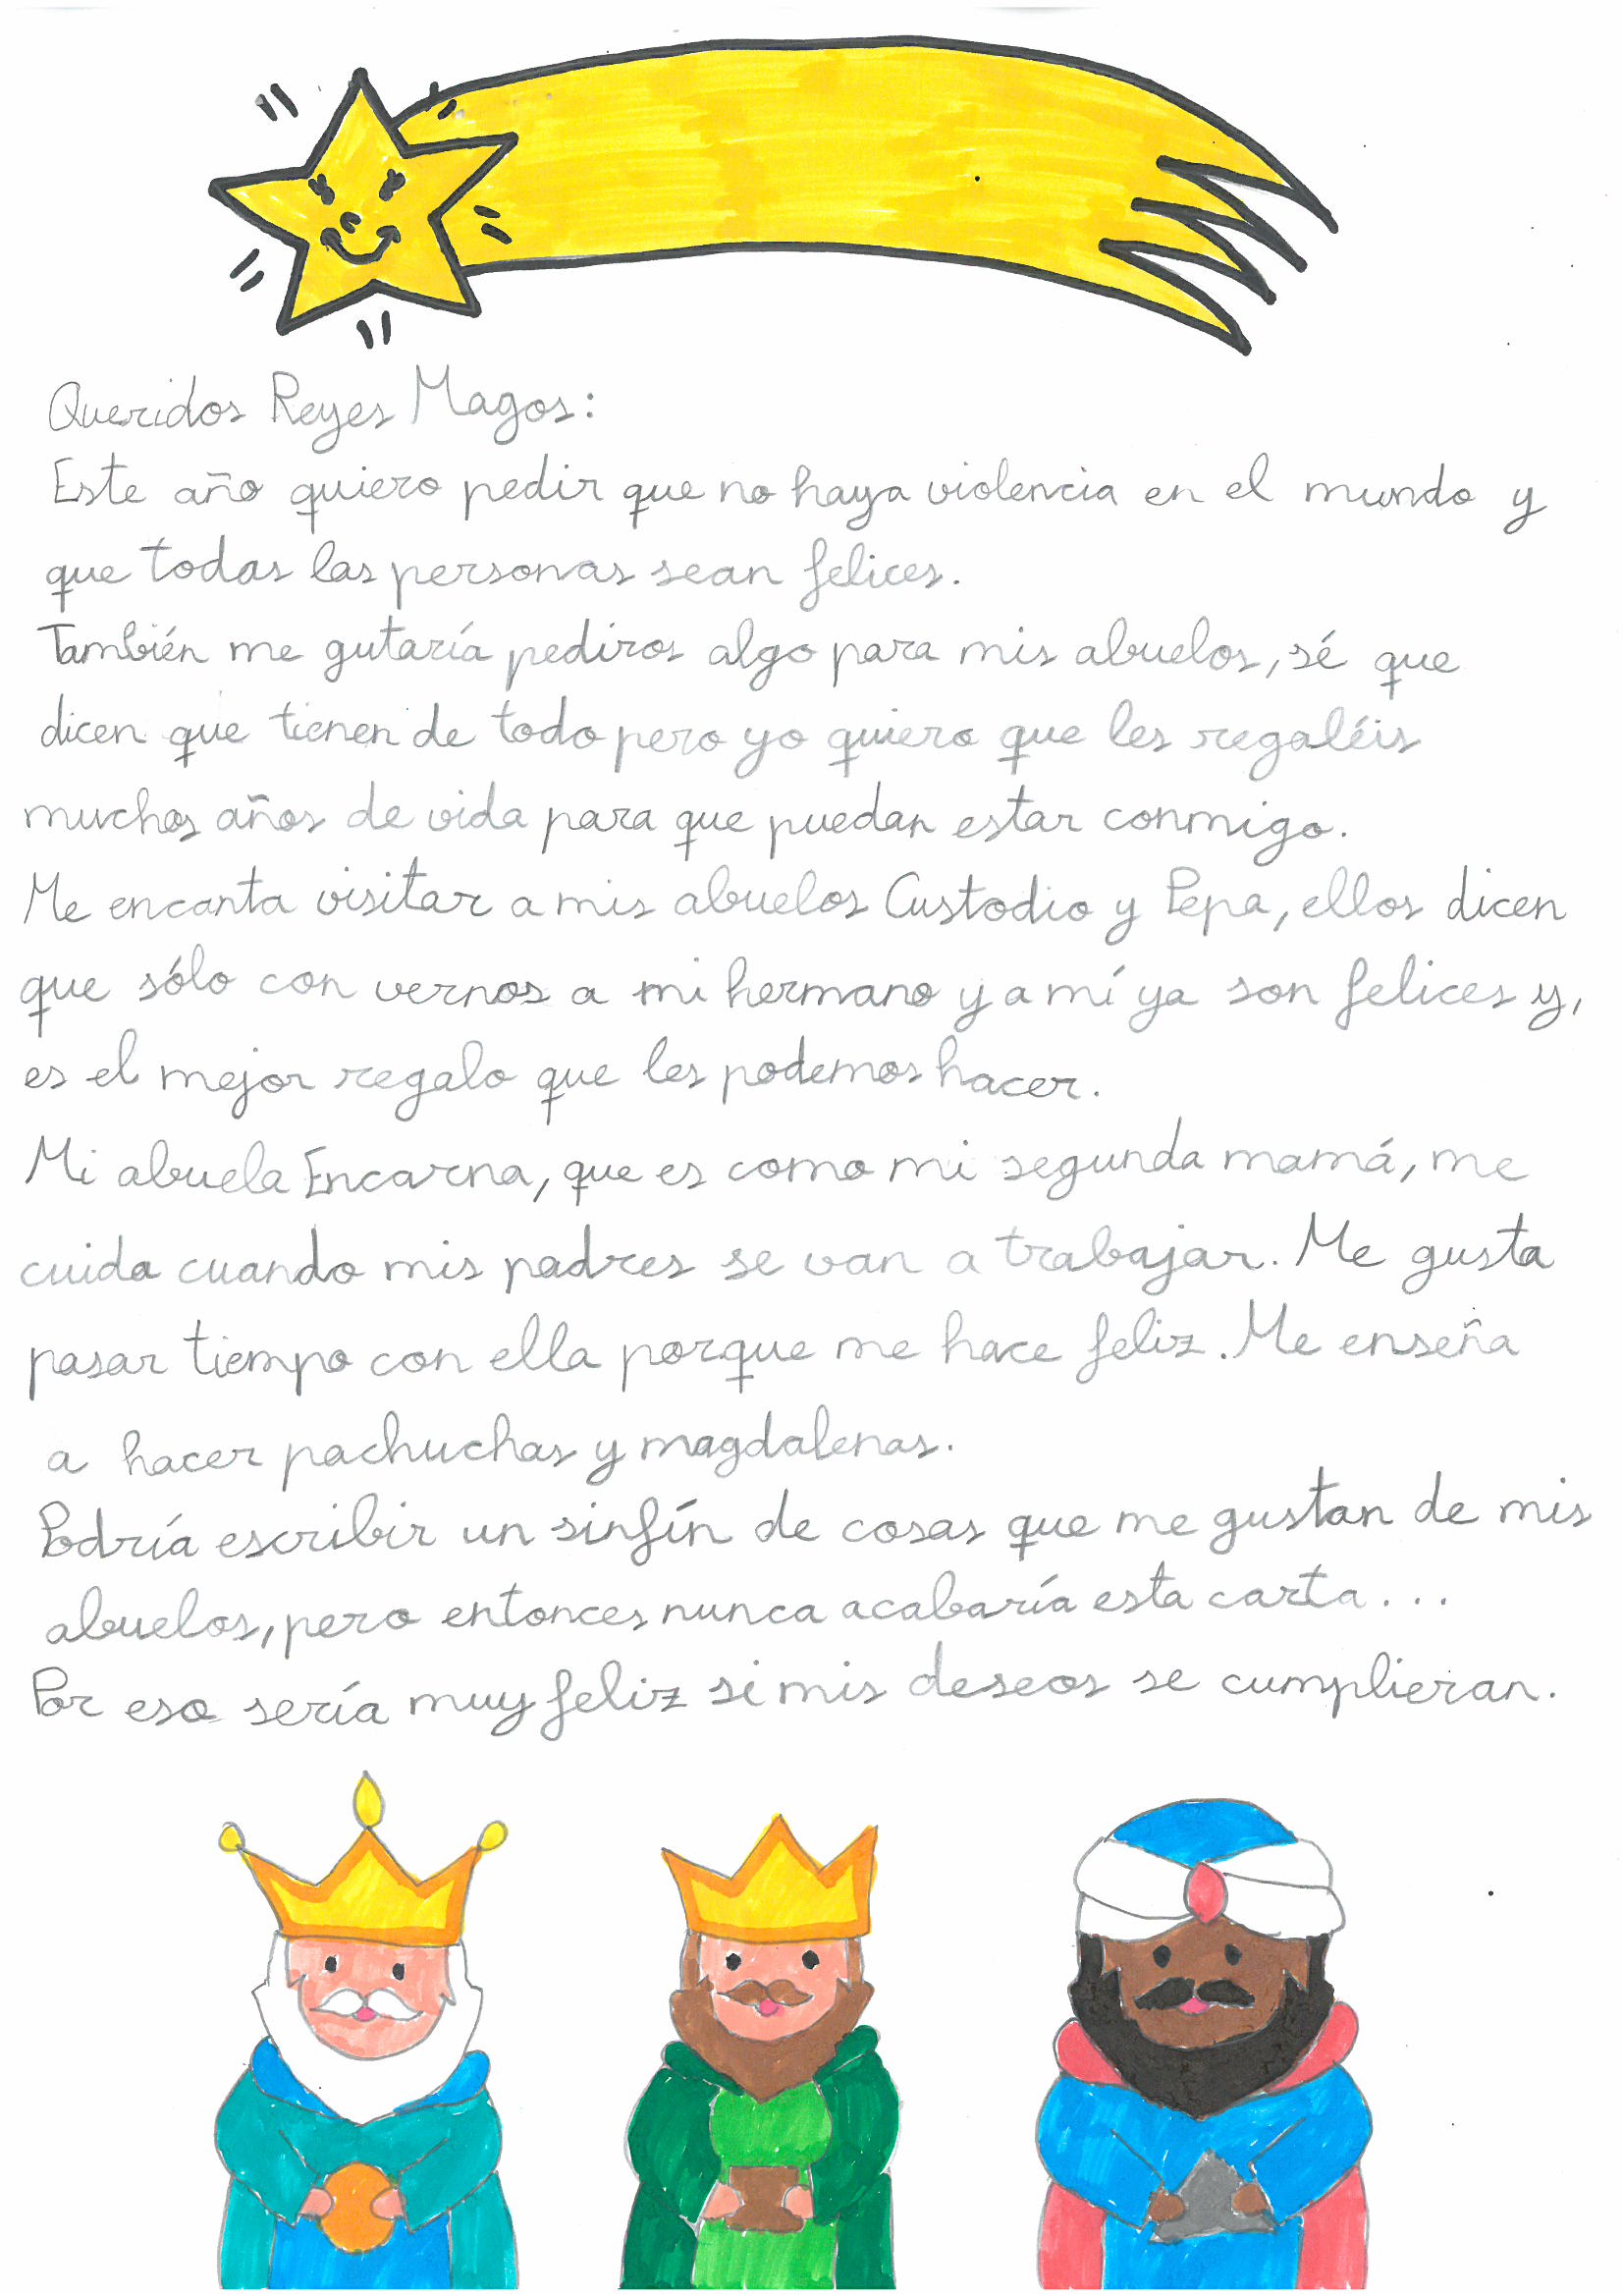 Queridos Reyes Magos:
Este año quiero pedir que no haya violencia en el mundo y
que todas las personas sean felices.
También me gutaría pediros algo para mis abuelos, sé que
dicen que tienen de todo pero yo quiero que les regaléis
muchos años de vida para que puedan estar conmigo.
Me encanta visitar a mis abuelos Custodio y Pepa, ellos dicen
que sólo con vernos a mi hermano y a mí ya son felices y,
es el mejor regalo que les podemos hacer.
Mi abuela Encarna, que es como mi segunda mamá, me
cuida cuando mis padres se van a trabajar. Me gusta
pasar tiempo con ella porque me hace feliz. Me enseña
a hacer pachuchas y magdalenas.
Podría escribir un sinfín de cosas que me gustan de mis
abuelos, pero entonces nunca acabaría esta carta...
Por eso sería muy feliz si mis deseos se cumplieran.